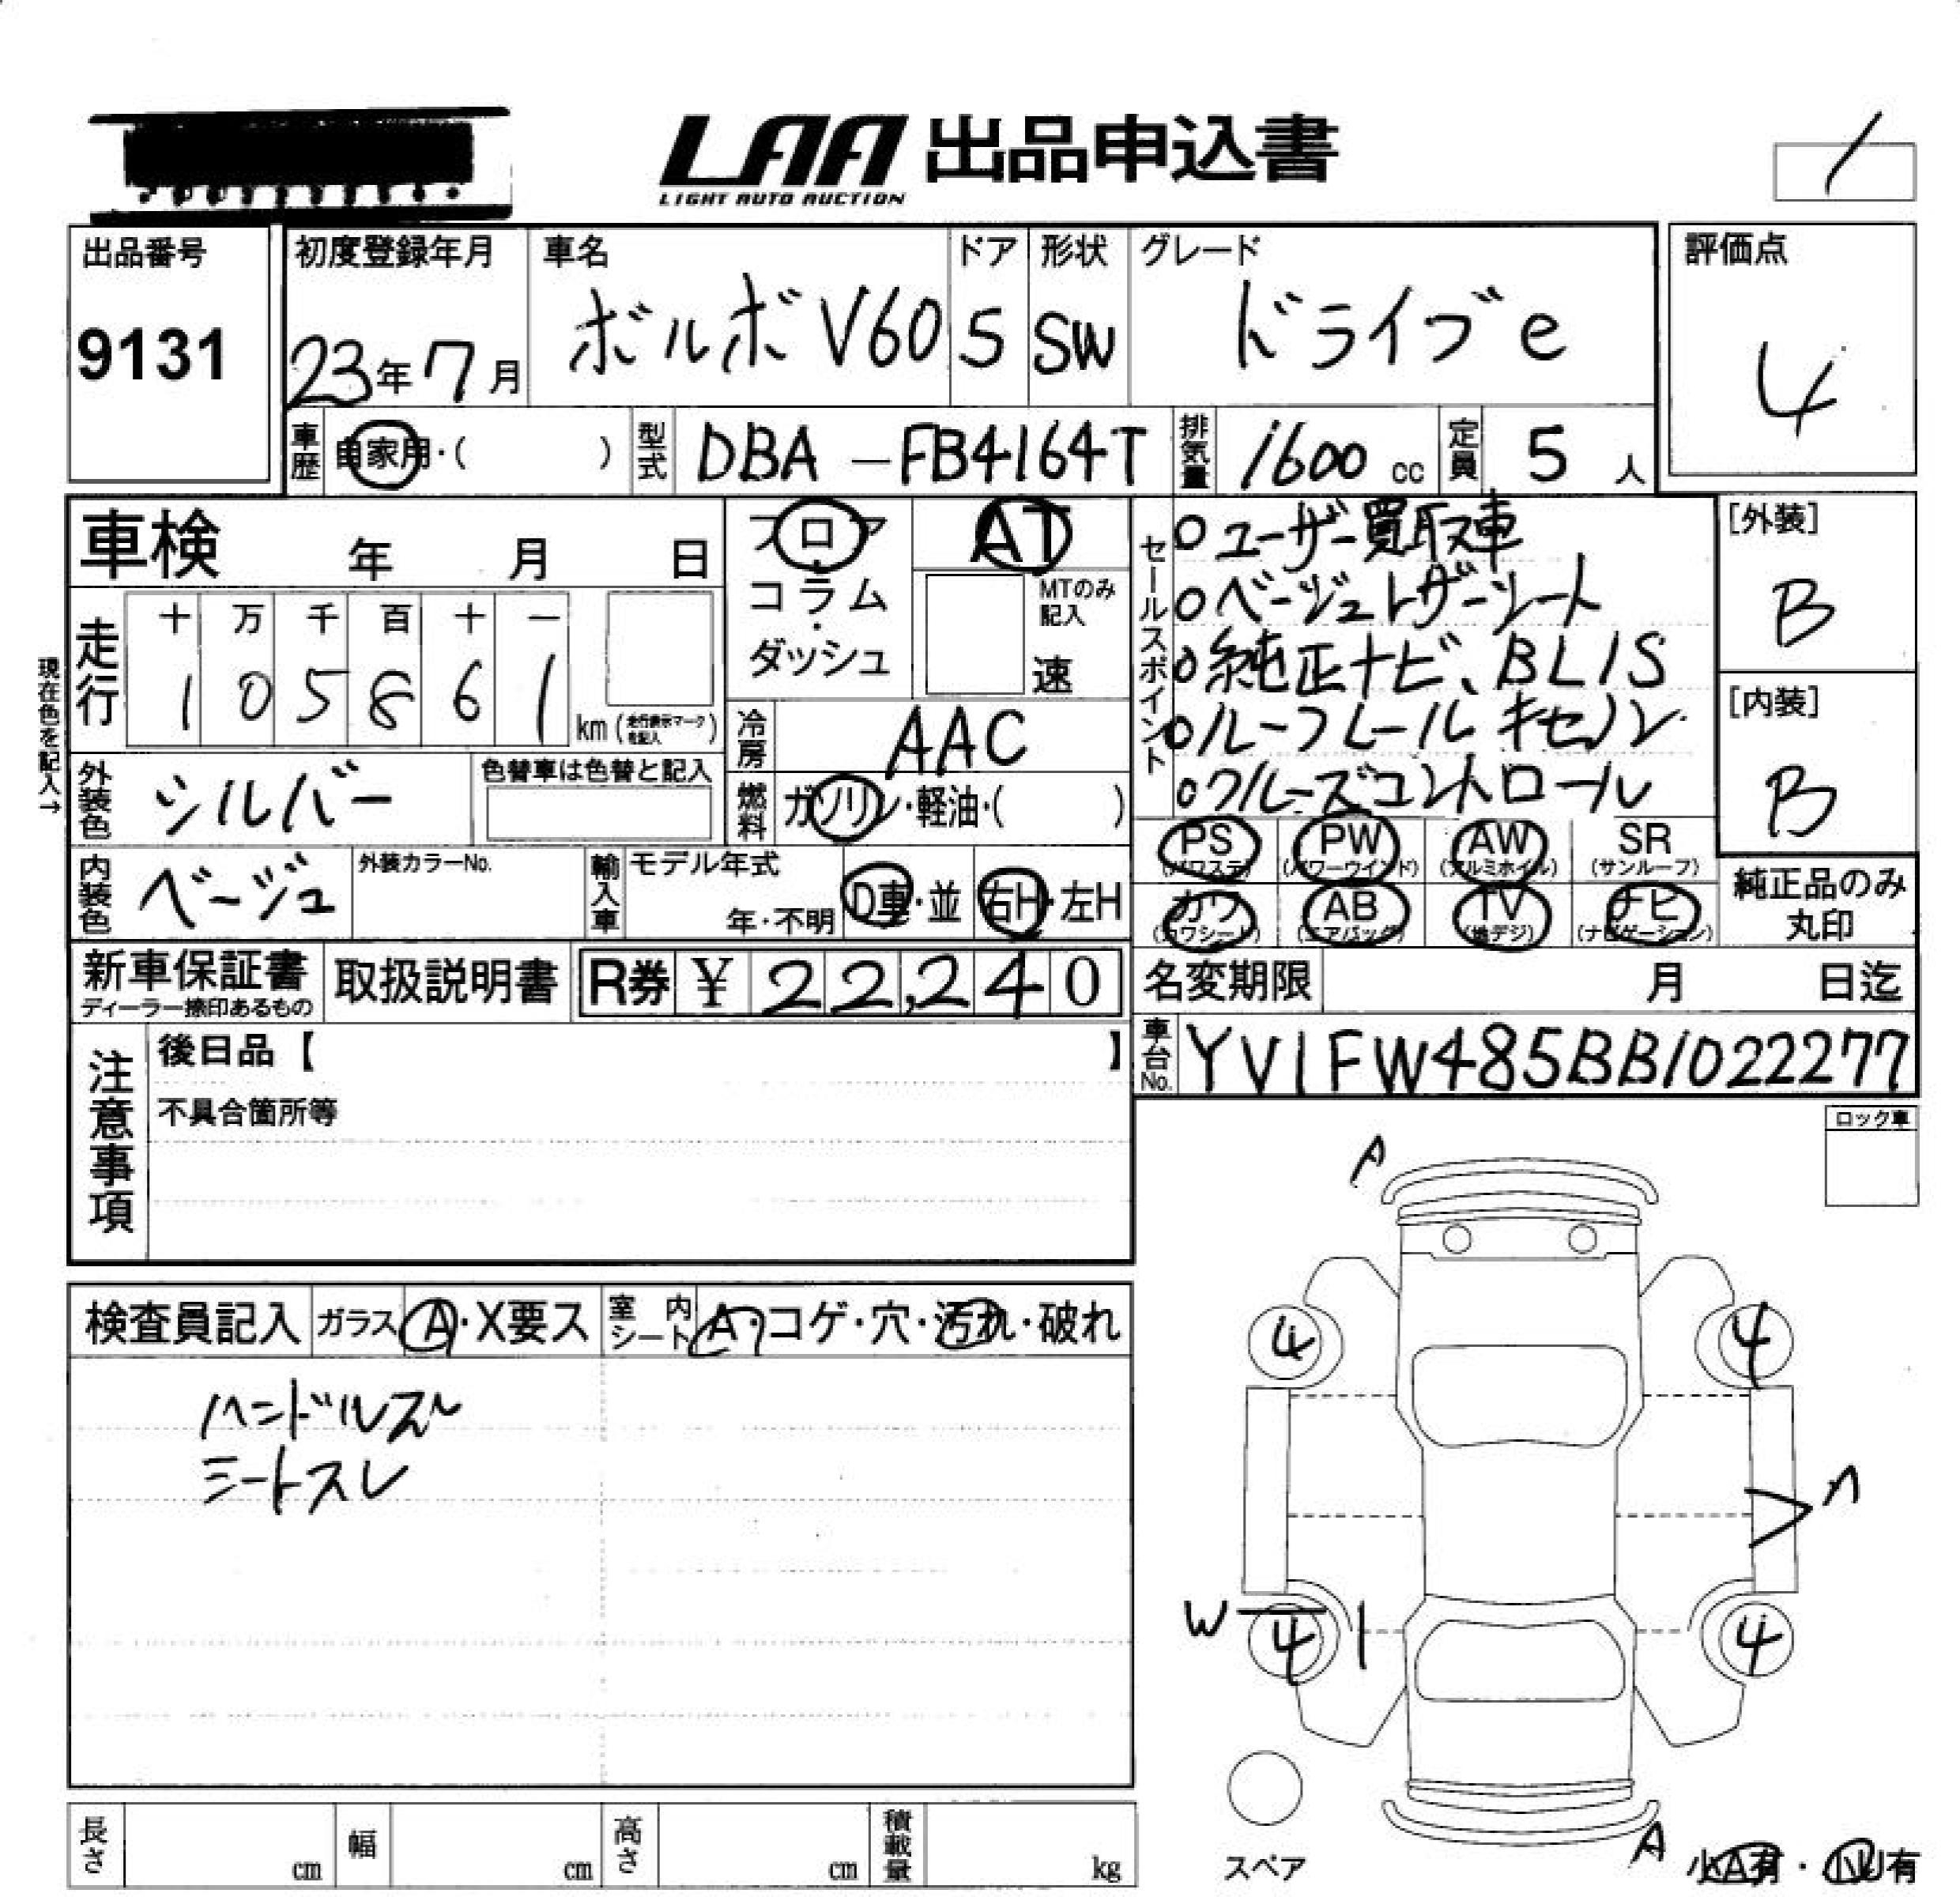 LAA 出品申込書
LIGHT AUTO AUCTION
出品番号
9131
初度登録年月
23年7月
車名
ボルボV60
ドア
5
形状
SW
グレード
ドライブe
評価点
4
車歴 自家用・( )
型式 DBA-FB4164T
排気量 1600 cc
定員 5 人
車検 年 月 日
フロア・コラム・ダッシュ
AT
MTのみ記入
速
セールスポイント
○ユーザー買取入車
○ベージュレザーシート
○純正ナビ、BLIS
○ルーフレール キセノン
○クルーズコントロール
[外装]
B
[内装]
B
現在色を記入→
走行
十 万 千 百 十 一
1 0 5 8 6 1
km (走行表示マークを記入)
冷房 AAC
外装色 シルバー
色替車は色替と記入
燃料 ガソリン・軽油・( )
PS (パワステ) PW (パワーウインド) AW (アルミホイル) SR (サンルーフ)
カワ (カワシート) AB (エアバッグ) TV (地デジ) ナビ (ナビゲーション)
純正品のみ丸印
内装色 ベージュ
外装カラーNo.
輸入車
モデル年式
年・不明
D車・並
右H・左H
新車保証書
ディーラー捺印あるもの
取扱説明書
R券 ¥ 22,240
名変期限 月 日迄
車台No. YV1FW485BB1022277
注意事項
後日品【 】
不具合箇所等
ロック車
A
検査員記入 ガラス A・X要ス 室内シート A・コゲ・穴・汚れ・破れ
ハンドルスレ
シートスレ
4 4
W 4 4
スペア
A
小A有・小U有
長さ cm 幅 cm 高さ cm 積載量 kg